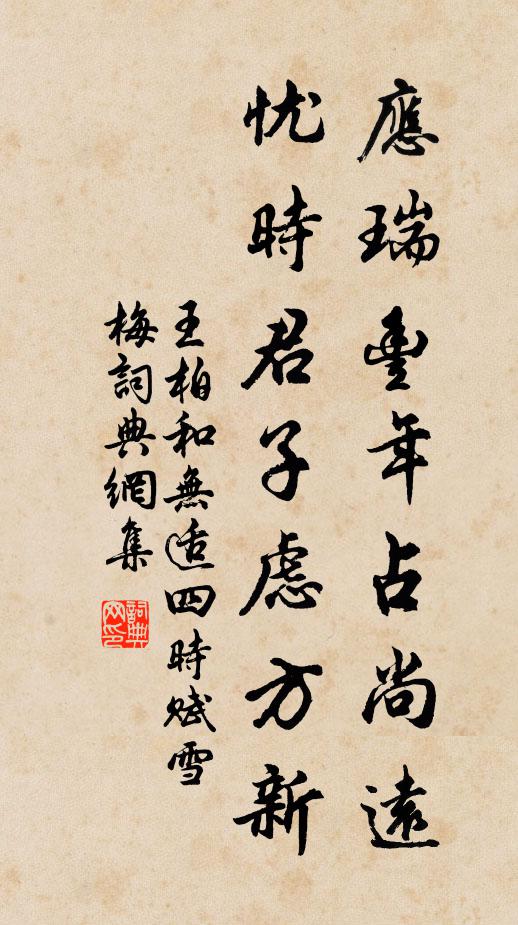 應瑞豐年占尚遠
忧時君子慮方新
王柏和無适四時賦雪
梅詞典網集
詞典网印